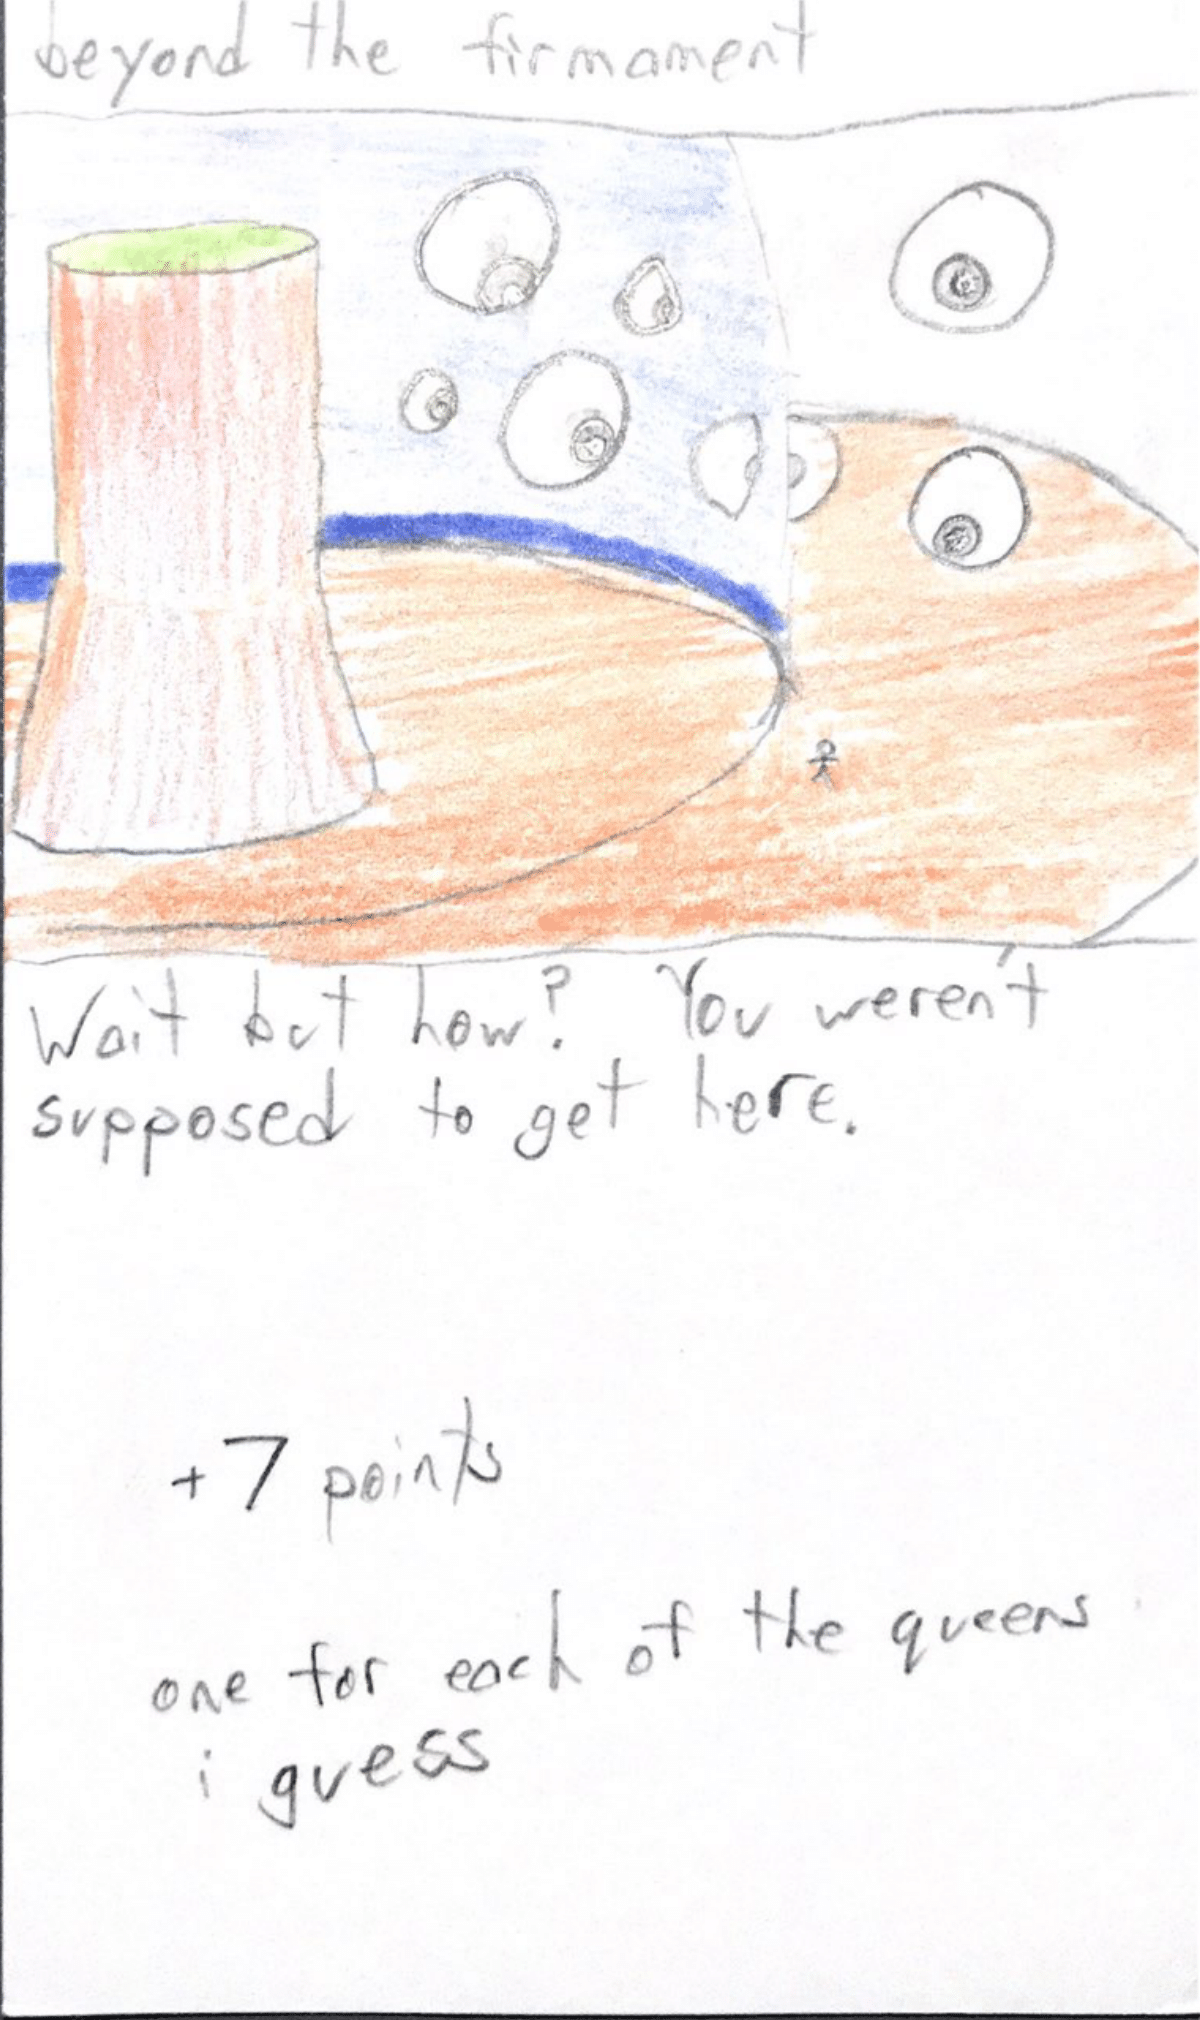 beyond the firmament
Wait but how? You weren't
supposed to get here.
+7 points
one for each of the queens
i guess